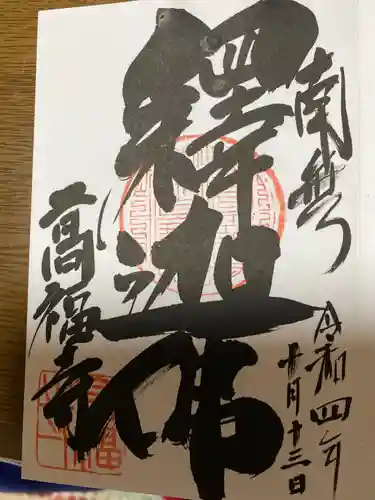 南無
令和四年
十月十三日
釋迦佛
高福寺